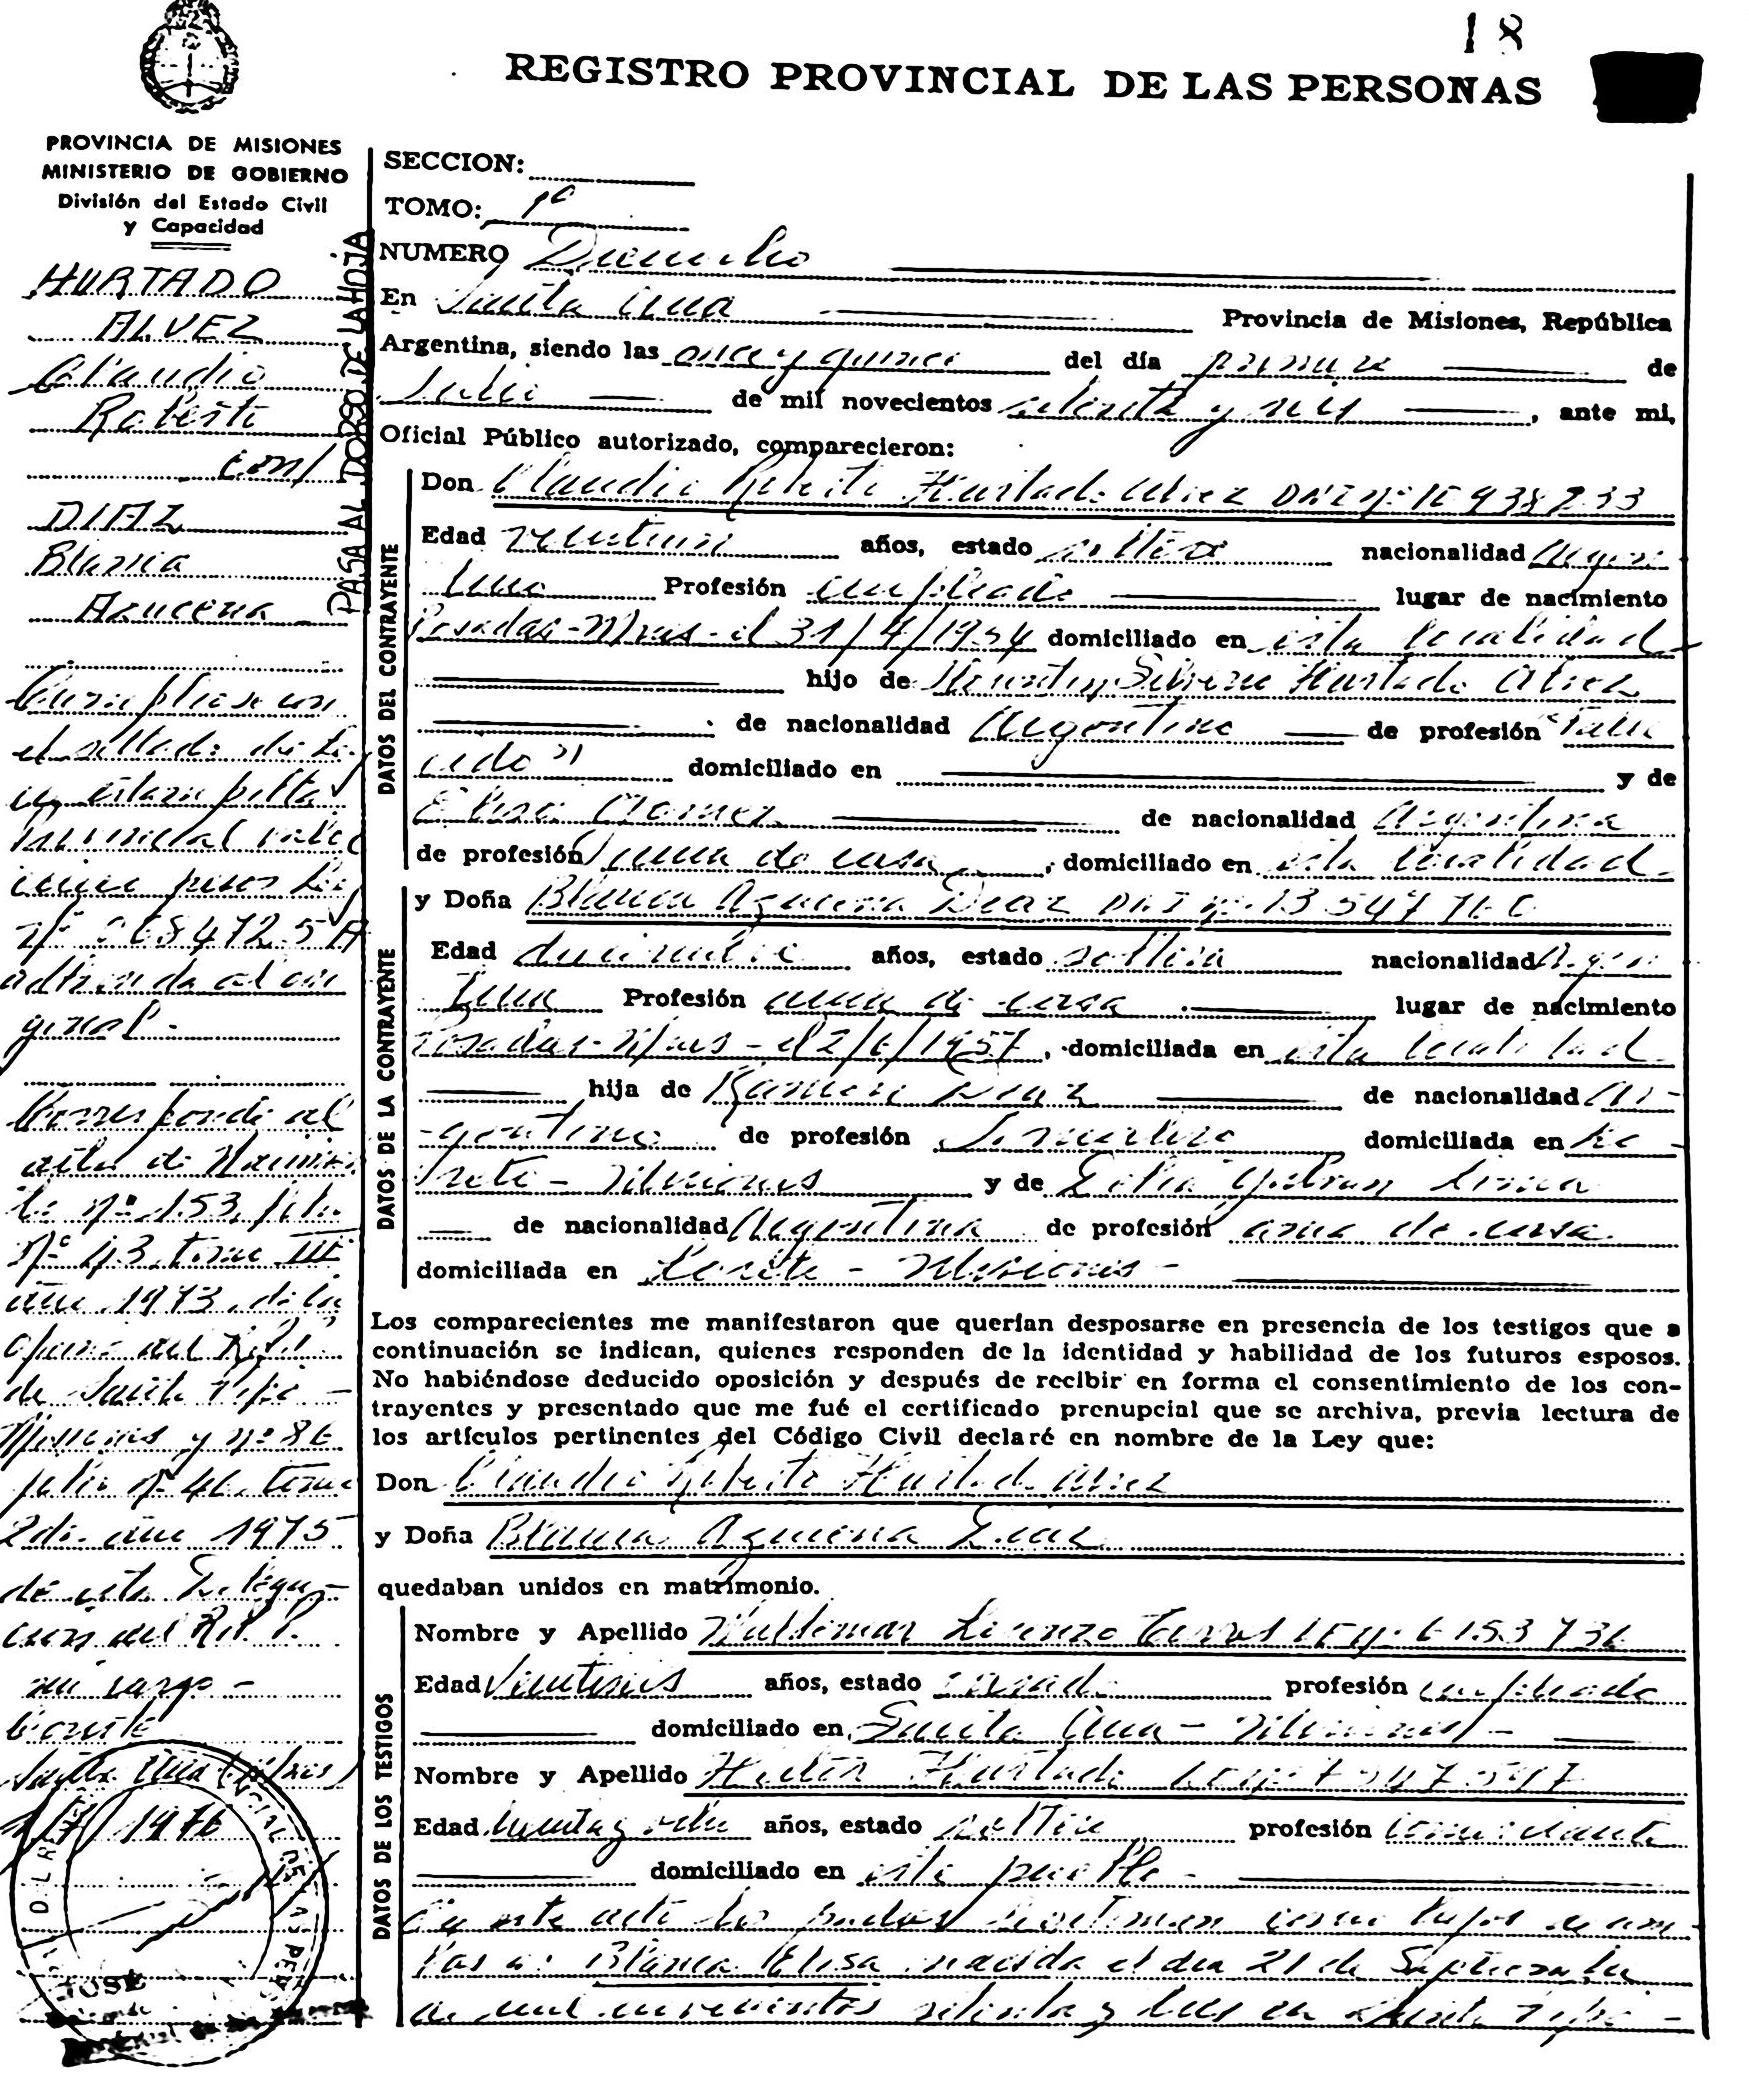 18
REGISTRO PROVINCIAL DE LAS PERSONAS
PROVINCIA DE MISIONES
MINISTERIO DE GOBIERNO
División del Estado Civil
y Capacidad
HURTADO
ALVEZ
Claudio
Roberto
con/
DIAZ
Blanca
Azucena
PASA AL DORSO DE LA HOJA
Cumpliose con
el sellado de Ley
en estampilla
Provincial valor
cinco pesos Ley
Nº 0684725 A
adherida al ori
ginal -
Corresponde al
acta de Nacimien
to Nº 153, folio
Nº 43, tomo III
año 1973, de la
oficina del
de Santo Pipó -
Misiones y nº 86
folio Nº 46, tomo
2do. año 1975
de esta Delega-
ción del R.P.P.
mi cargo -
Conste
Santa Ana (Mnes)
1/7/1976
JOSE
SECCION:
TOMO: 1º
NUMERO Dieciocho
En Santa Ana Provincia de Misiones, República
Argentina, siendo las once y quince del día primero de
Julio de mil novecientos setenta y seis, ante mi,
Oficial Público autorizado, comparecieron:
DATOS DEL CONTRAYENTE
Don Claudio Roberto Hurtado Alvez DNI Nº
Edad veintiun años, estado soltero nacionalidad Argen
tino Profesión empleado lugar de nacimiento
Posadas - Mnes - el 31/ /1954 domiciliado en esta localidad
hijo de Hurtado Alvez
de nacionalidad Argentino de profesión "Falle
cido" domiciliado en y de
Elisa Gomez de nacionalidad Argentina
de profesión ama de casa, domiciliado en esta localidad
DATOS DE LA CONTRAYENTE
y Doña Blanca Azucena Diaz DNI Nº 13 547
Edad diecinueve años, estado soltera nacionalidad Argen
tina Profesión ama de casa lugar de nacimiento
Posadas - Mnes - el 2/6/1957, domiciliada en esta localidad
hija de Ramón Diaz de nacionalidad Ar-
gentino de profesión domiciliada en Lo-
reto - Misiones y de Lima
de nacionalidad Argentina de profesión ama de casa
domiciliada en Loreto - Misiones -
Los comparecientes me manifestaron que querían desposarse en presencia de los testigos que a
continuación se indican, quienes responden de la identidad y habilidad de los futuros esposos.
No habiéndose deducido oposición y después de recibir en forma el consentimiento de los con-
trayentes y presentado que me fué el certificado prenupcial que se archiva, previa lectura de
los artículos pertinentes del Código Civil declaré en nombre de la Ley que:
Don Claudio Roberto Hurtado Alvez
y Doña Blanca Azucena Diaz
quedaban unidos en matrimonio.
DATOS DE LOS TESTIGOS
Nombre y Apellido Waldemar Lorenzo LE Nº
Edad Veintiseis años, estado casado profesión empleado
domiciliado en Santa Ana - Misiones -
Nombre y Apellido Hurtado LE Nº
Edad treinta y ocho años, estado soltero profesión comerciante
domiciliado en este pueblo -
En este acto los padres legitiman como hijos de am-
bos a: Blanca Elisa nacida el dia 21 de Septiembre
de mil novecientos setenta y tres en Santo Pipó -